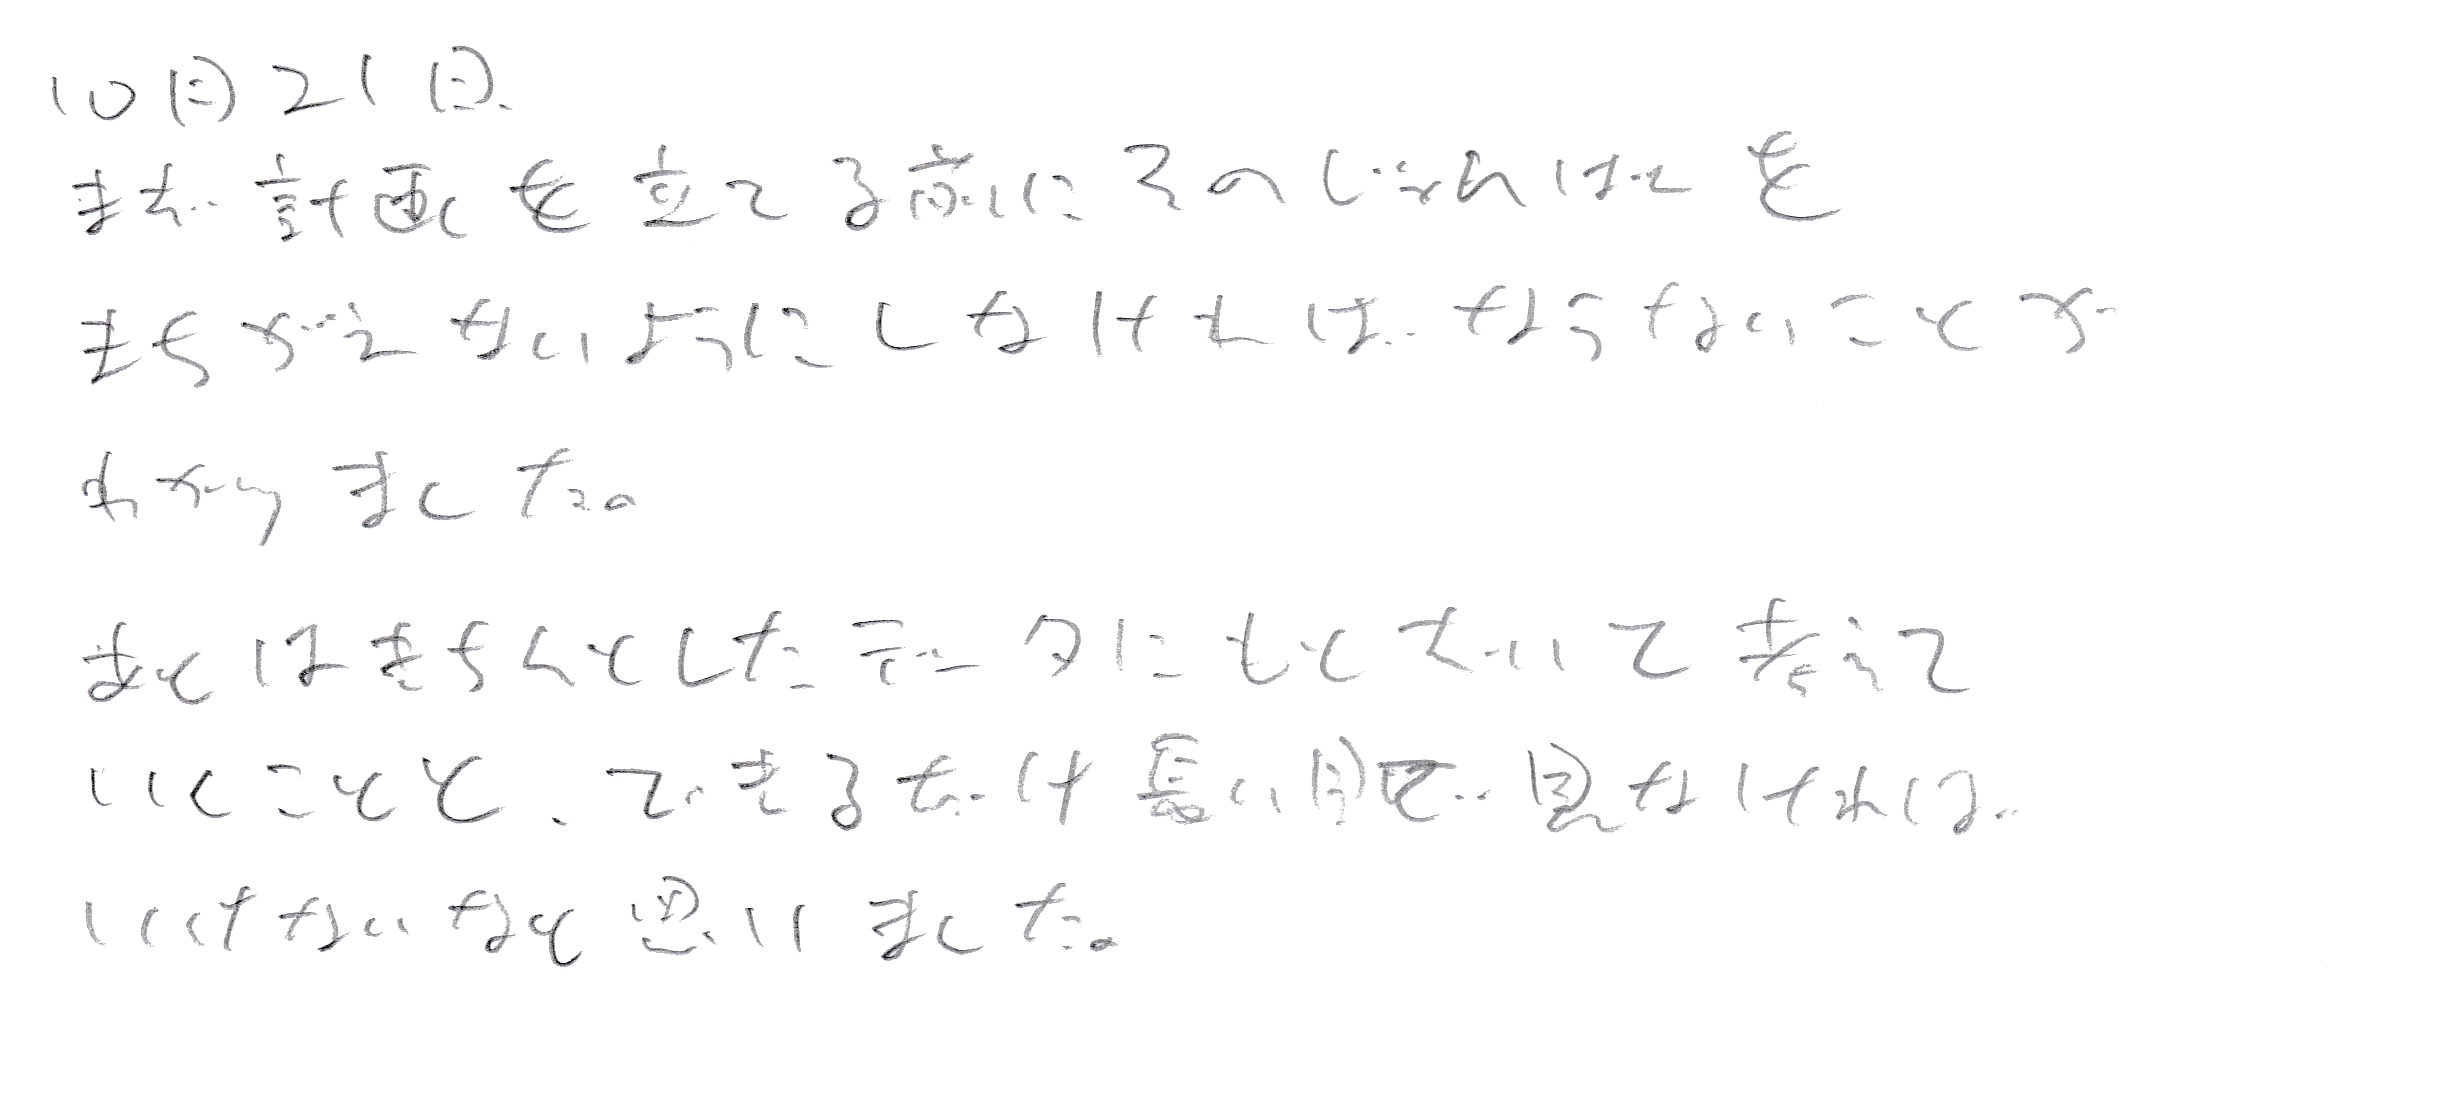 10月21日
まず計画を立てる前にそのじゅんばんを
まちがえないようにしなければならないことが
わかりました。
あとはきちんとしたデータにもとずいて考えて
いくことと、できるだけ長い目で見なければ
いけないなと思いました。